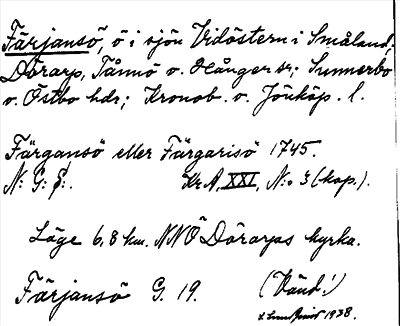 Färjansö, ö i sjön Vidöstern i Småland;
Dörarp, Tånnö o. Hånger sn; Sunnerbo
o. Östbo hdr; Kronob. o. Jönköp. l.
Färgansö eller Färgarisö 1745.
N: G: §:. KrA, XXI, N:o 3 (kop.).
Läge 6,8 km. NNÖ Dörarps kyrka.
Färjansö G. 19. (Vänd!)
1938.